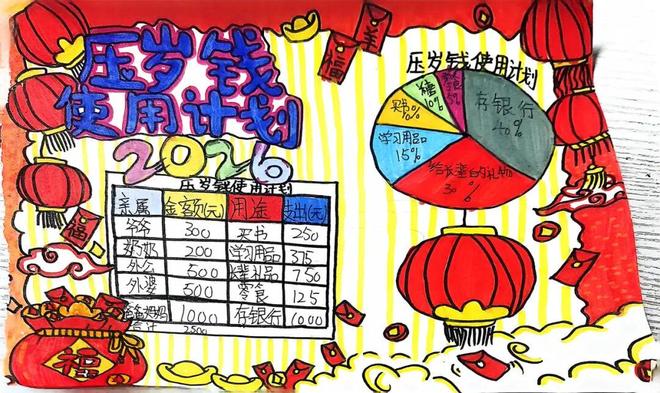 压岁钱
使用计划
2026
压岁钱使用计划
亲属 金额(元) 用途 支出(元)
爷爷 300 买书 250
奶奶 200 学习用品 375
外公 500 长辈礼品 750
外婆 500 零食 125
爸爸妈妈 1000 存银行 1000
合计 2500
福
羊
压岁钱使用计划
存银行
40%
给长辈的礼物
30%
学习用品
15%
买书
10%
福
福